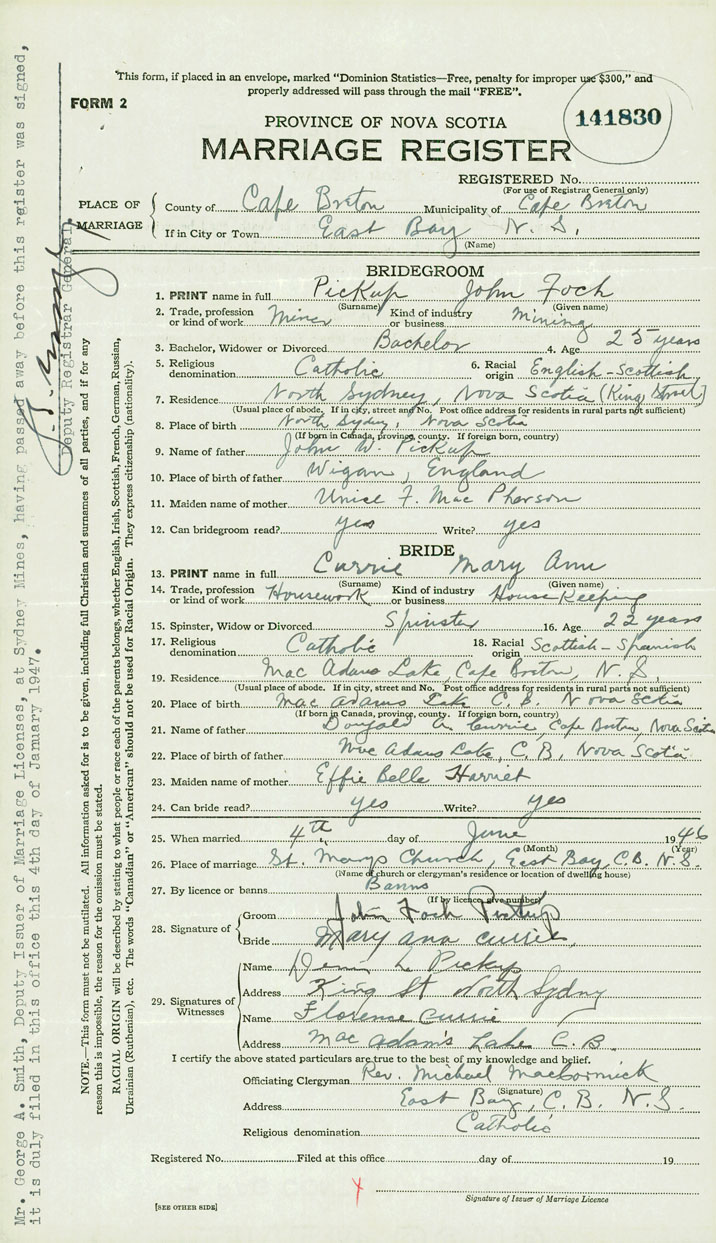 This form, if placed in an envelope, marked "Dominion Statistics—Free, penalty for improper use $300," and
properly addressed will pass through the mail "FREE".
FORM 2
141830
PROVINCE OF NOVA SCOTIA
MARRIAGE REGISTER
REGISTERED No.
(For use of Registrar General only)
PLACE OF MARRIAGE
County of Cape Breton Municipality of Cape Breton
If in City or Town East Bay N. S.
(Name)
BRIDEGROOM
1. PRINT name in full Pickup John Foch
(Surname) (Given name)
2. Trade, profession or kind of work Miner Kind of industry or business Mining
3. Bachelor, Widower or Divorced Bachelor 4. Age 25 years
5. Religious denomination Catholic 6. Racial origin English-Scottish
7. Residence North Sydney, Nova Scotia (King Street)
(Usual place of abode. If in city, street and No. Post office address for residents in rural parts not sufficient)
8. Place of birth North Sydney, Nova Scotia
(If born in Canada, province, county. If foreign born, country)
9. Name of father John W. Pickup
10. Place of birth of father Wigan, England
11. Maiden name of mother Unice F. Mac Pherson
12. Can bridegroom read? yes Write? yes
BRIDE
13. PRINT name in full Currie Mary Ann
(Surname) (Given name)
14. Trade, profession or kind of work Housework Kind of industry or business House Keeping
15. Spinster, Widow or Divorced Spinster 16. Age 22 years
17. Religious denomination Catholic 18. Racial origin Scottish-Spanish
19. Residence Mac Adams Lake, Cape Breton, N. S.
(Usual place of abode. If in city, street and No. Post office address for residents in rural parts not sufficient)
20. Place of birth Mac Adams Lake C. B. Nova Scotia
(If born in Canada, province, county. If foreign born, country)
21. Name of father Currie, Cape Breton, Nova Scotia
22. Place of birth of father Mac Adams Lake, C. B, Nova Scotia
23. Maiden name of mother Effie Belle Harriet
24. Can bride read? yes Write? yes
25. When married 4th day of June 1946
(Month) (Year)
26. Place of marriage St. Marys Church, East Bay, C. B. N. S.
(Name of church or clergyman's residence or location of dwelling house)
27. By licence or banns Banns
(If by licence, give number)
28. Signature of
Groom John Foch Pickup
Bride Mary ann Currie
29. Signatures of Witnesses
Name L Pickup
Address King St North Sydney
Name Florence Currie
Address Mac Adam's Lake C. B.
I certify the above stated particulars are true to the best of my knowledge and belief.
Officiating Clergyman Rev. Michael MacCormick
(Signature)
Address East Bay, C. B. N. S.
Religious denomination Catholic
Registered No. Filed at this office day of 19
Signature of Issuer of Marriage Licence
[SEE OTHER SIDE]
NOTE.—This form must not be mutilated. All information asked for is to be given, including full Christian and surnames of all parties, and if for any
reason this is impossible, the reason for the omission must be stated.
RACIAL ORIGIN will be described by stating to what people or race each of the parents belongs, whether English, Irish, Scottish, French, German, Russian,
Ukrainian (Ruthenian), etc. The words "Canadian" or "American" should not be used for Racial Origin. They express citizenship (nationality).
Mr. George A. Smith, Deputy Issuer of Marriage Licenses, at Sydney Mines, having passed away before this register was signed,
it is duly filed in this office this 4th day of January 1947.
Deputy Registrar General.